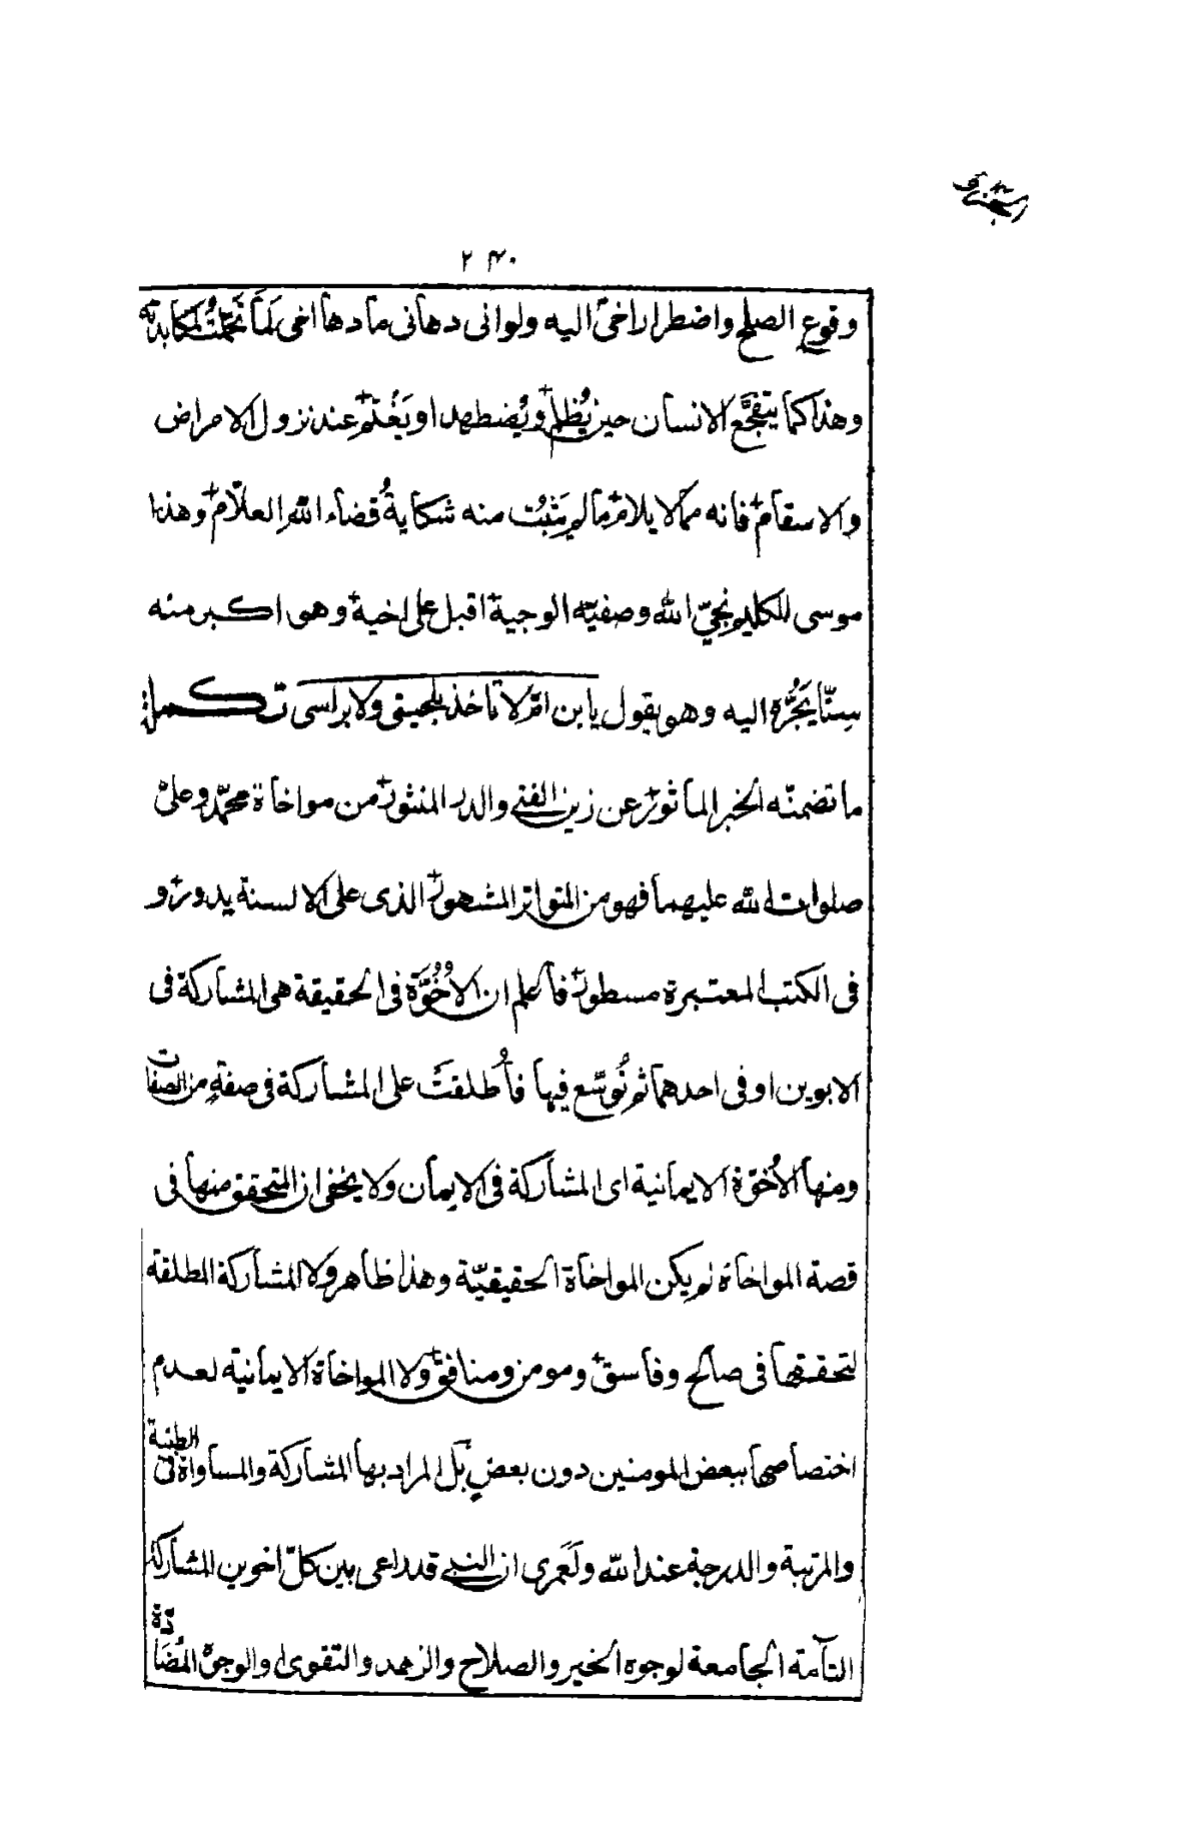 ۲۴۰
وقوع الصلح واضطرار اخیْ الیه ولوانی دهانی ما دها اخی لَمَا تَحَمَّلْتُ لمکابدته
وهذا کما یتفجَّع الانسان حین یُظلم ویُضطهد او یَغْتمّ عند نزول الامراض
والاسقام فانه مما لا یلام ما لم یَثبُت منه شکایةُ قضاء الله العلّام وهذا
موسی الکلیم نجیّ الله وصفیّه الوجیه اقبل علی اخیه وهو اکبر منه
سِنّا یَجُرُّه الیه وهو یقول یابن امّ لا تاخذ بلحیتی ولا براسی تکملة
ما تضمنّه الخبر الماثور عن زین الفتی والدر المنثور من مواخاة محمّد وعلیّ
صلوات الله علیهما فهو من المتواتر المشهور الذی علی الالسنة یدور و
فی الکتب المعتبرة مسطور فاعلم ان الاُخُوَّة فی الحقیقة هی المشارکة فی
الابوین او فی احدهما ثم تُوُسّع فیها فاُطلقتْ علی المشارکة فی صفةٍ من الصفات
ومنها الاُخوّة الایمانیة ای المشارکة فی الایمان ولا یخفی ان المتحقق منها فی
قصة المواخاة لم یکن المواخاة الحقیقیّة وهذا ظاهر ولا المشارکة المطلقة
لتحققها فی صالح وفاسق ومومن ومنافق ولا المواخاة الایمانیة لعدم
اختصاصها ببعض المومنین دون بعضٍ بل المراد بها المشارکة والمساواة فی الطینة
والمرتبة والدرجة عند الله ولَعَمری ان النبی قد راعی بین کلّ اخوین المشارکة
التآمة الجامعة لوجوه الخیر والصلاح والزهد والتقوی والوجوه المُضَادّة